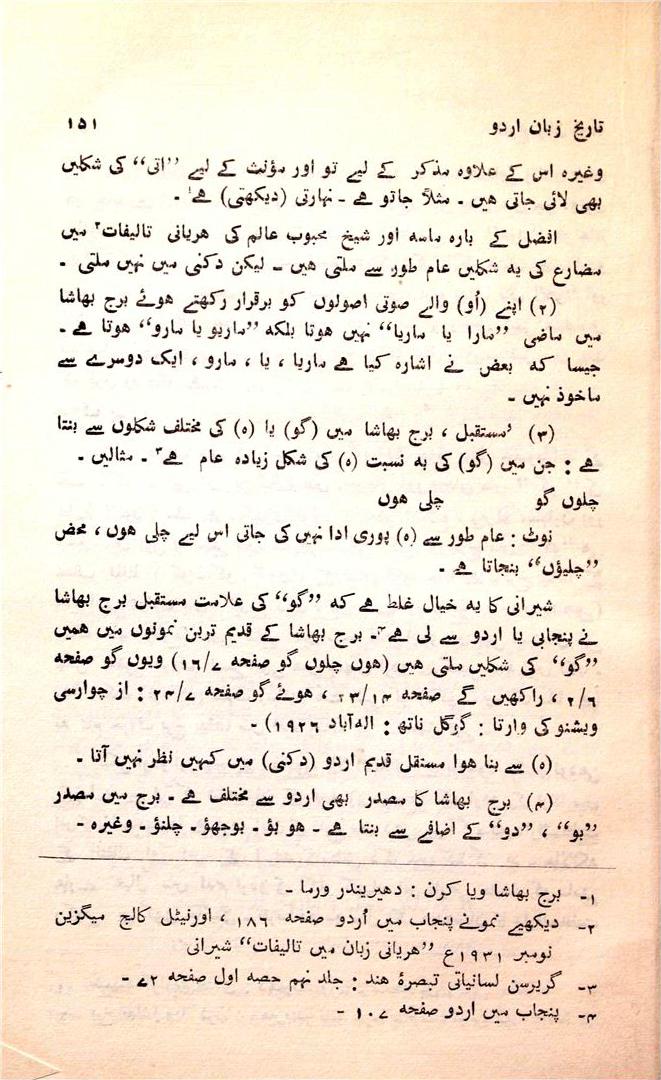 تاریخ زبان اردو ۱۵۱
وغیرہ اس کے علاوہ مذکر کے لیے تو اور مؤنث کے لیے ’’اتی‘‘ کی شکلیں
بھی لائی جاتی ہیں ۔ مثلاً جاتو ہے ۔ نہارتی (دیکھتی) ہے۱ ۔
افضل کے بارہ ماسہ اور شیخ محبوب عالم کی ہریانی تالیفات۲ میں
مضارع کی یہ شکلیں عام طور سے ملتی ہیں ۔ لیکن دکنی میں نہیں ملتی ۔
(۲) اپنے (اُو) والے صوتی اصولوں کو برقرار رکھتے ہوئے برج بھاشا
میں ماضی ’’مارا یا ماریا‘‘ نہیں ہوتا بلکہ ’’ماریو یا مارو‘‘ ہوتا ہے ۔
جیسا کہ بعض نے اشارہ کیا ہے ماریا ، یا ، مارو ، ایک دوسرے سے
ماخوذ نہیں ۔
(۳) مستقبل ، برج بھاشا میں (گو) یا (ہ) کی مختلف شکلوں سے بنتا
ہے : جن میں (گو) کی بہ نسبت (ہ) کی شکل زیادہ عام ہے۳ ۔ مثالیں ۔
چلوں گو چلی ہوں
نوٹ : عام طور سے (ہ) پوری ادا نہیں کی جاتی اس لیے چلی ہوں ، محض
’’چلیؤں‘‘ بنجاتا ہے ۔
شیرانی کا یہ خیال غلط ہے کہ ’’گو‘‘ کی علامت مستقبل برج بھاشا
نے پنجابی یا اردو سے لی ہے۴۔ برج بھاشا کے قدیم ترین نمونوں میں ہمیں
’’گو‘‘ کی شکلیں ملتی ہیں (ہوں چلوں گو صفحہ ۱۶/۷) ویوں گو صفحہ
۲/۶ ، راکھیں گے صفحہ ۲۳/۱۴ ، ہوئے گو صفحہ ۲۴/۷ : از چوارسی
ویشنو کی وارتا : گوکل ناتھ : الہ‌آباد ۱۹۲۶) ۔
(ہ) سے بنا ہوا مستقل قدیم اردو (دکنی) میں کہیں نظر نہیں آتا ۔
(۴) برج بھاشا کا مصدر بھی اردو سے مختلف ہے ۔ برج میں مصدر
’’بو‘‘ ، ’’دو‘‘ کے اضافے سے بنتا ہے ۔ ہو بؤ ۔ بوجھؤ ۔ چلنؤ ۔ وغیرہ ۔
۱۔ برج بھاشا ویا کرن : دھیریندر ورما ۔
۲۔ دیکھیے نمونے پنجاب میں اُردو صفحہ ۱۸۶ ، اورنیٹل کالج میگزین
نومبر ۱۹۳۱ع ’’ہریانی زبان میں تالیفات‘‘ شیرانی
۳۔ گریرسن لسانیاتی تبصرۂ ہند : جلد نہم حصہ اول صفحہ ۷۲ ۔
۴۔ پنجاب میں اردو صفحہ ۱۰۷ ۔